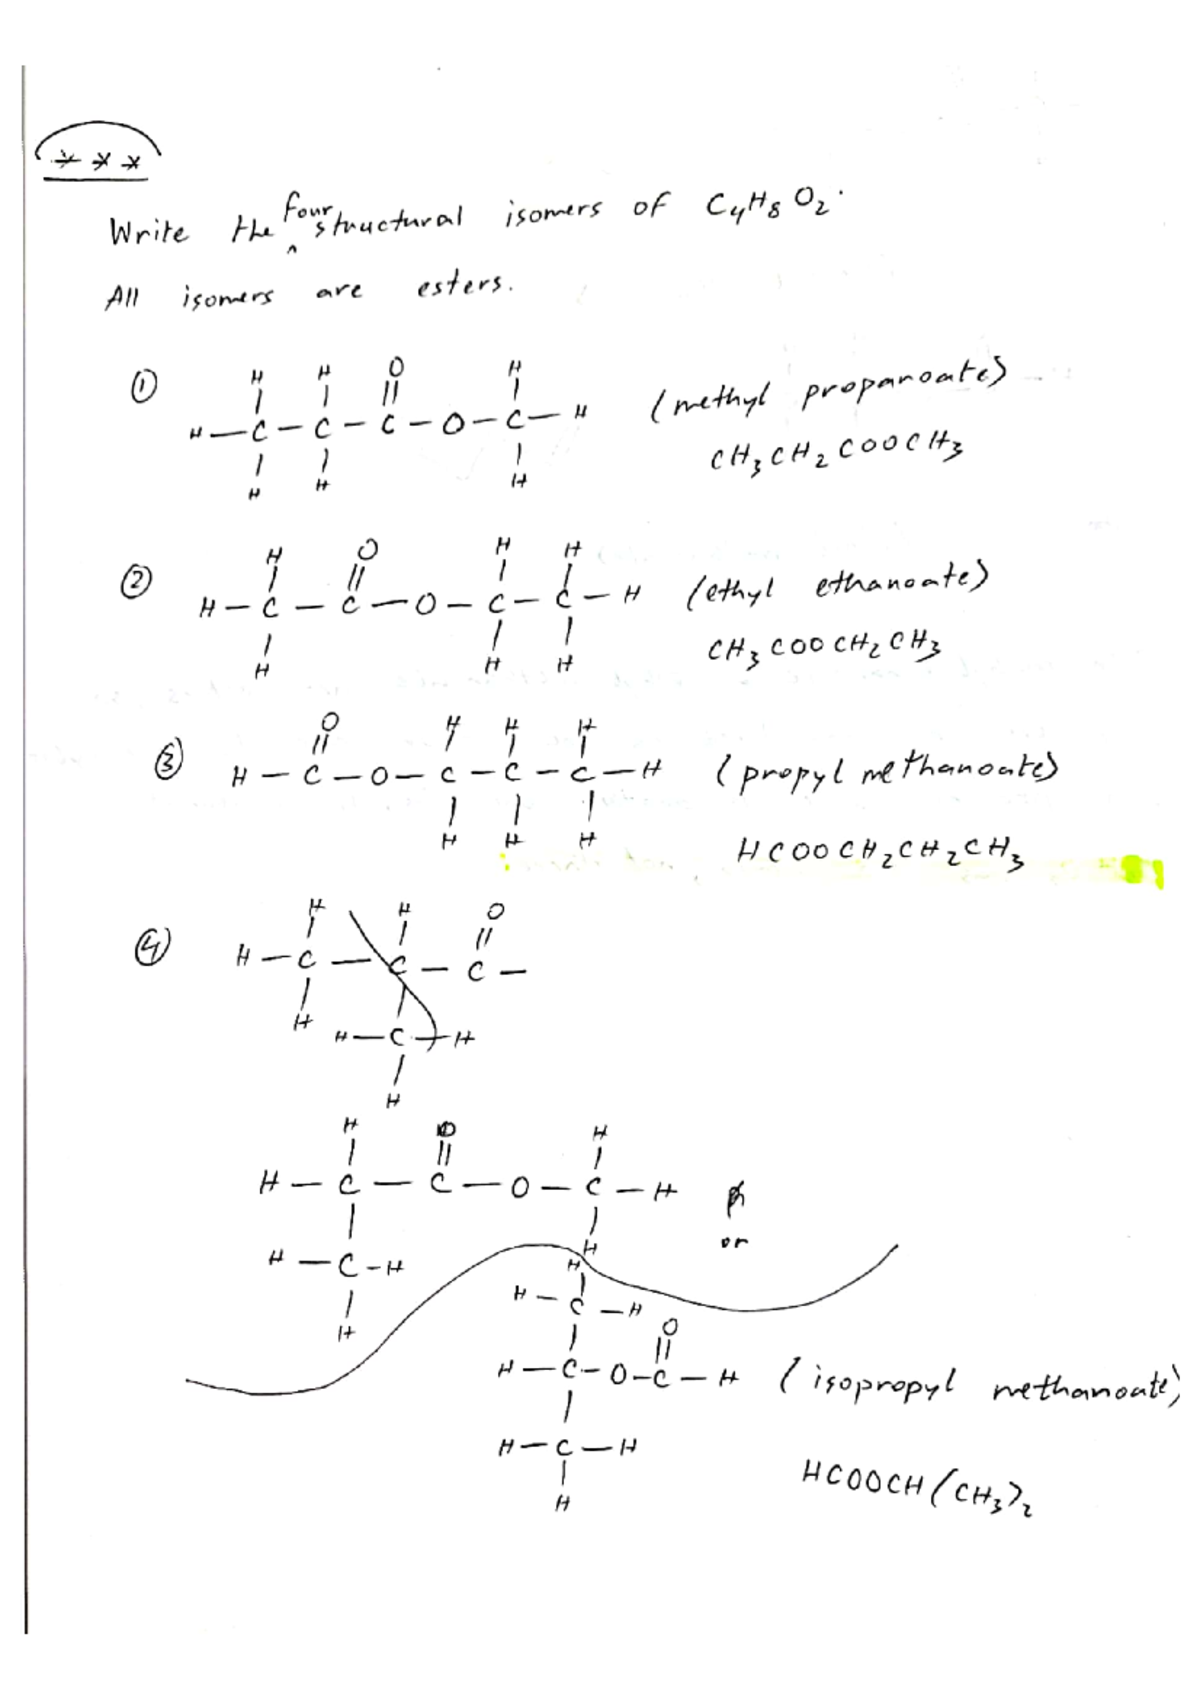 * * *
Write the four structural isomers of C4H8O2.
All isomers are esters.
①
H H O H
| | || |
H — C — C — C — O — C — H (methyl propanoate)
| | |
H H H
CH3CH2COOCH3
②
H O H H
| || | |
H — C — C — O — C — C — H (ethyl ethanoate)
| | |
H H H
CH3COOCH2CH3
③
O H H H
|| | | |
H — C — O — C — C — C — H (propyl methanoate)
| | |
H H H
HCOOCH2CH2CH3
④
H H O
| | ||
H — C — C — C —
| |
H
H — C — H
|
H
H O H
| || |
H — C — C — O — C — H
| |
or
H — C — H H
|
H
H
|
H — C — H
| O
||
H — C — O — C — H (isopropyl methanoate)
|
H — C — H
|
H
HCOOCH(CH3)2